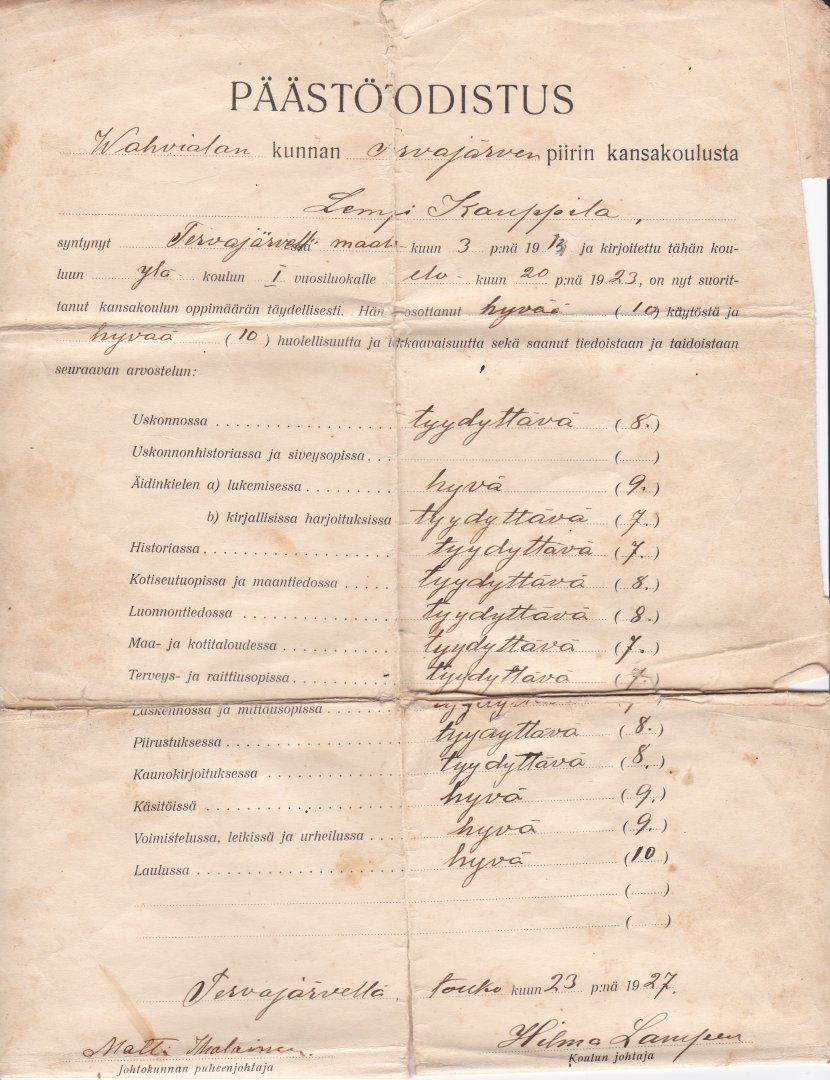 PÄÄSTÖTODISTUS
Wahvialan kunnan Tervajärven piirin kansakoulusta
Lempi Kauppila,
syntynyt Tervajärvellä maalis kuun 3 p:nä 19 ja kirjoitettu tähän kou-
luun ylä koulun I vuosiluokalle elo- kuun 20 p:nä 1923, on nyt suorit-
tanut kansakoulun oppimäärän täydellisesti. Hän osottanut hyvää (10) käytöstä ja
hyvää (10) huolellisuutta ja tarkkaavaisuutta sekä saanut tiedoistaan ja taidoistaan
seuraavan arvostelun:
Uskonnossa tyydyttävä (8.)
Uskonnonhistoriassa ja siveysopissa ( )
Äidinkielen a) lukemisessa hyvä (9.)
b) kirjallisissa harjoituksissa tyydyttävä (7.)
Historiassa tyydyttävä (7.)
Kotiseutuopissa ja maantiedossa tyydyttävä (8.)
Luonnontiedossa tyydyttävä (8.)
Maa- ja kotitaloudessa tyydyttävä (7.)
Terveys- ja raittiusopissa tyydyttävä (7.)
Laskennossa ja mittausopissa
Piirustuksessa tyydyttävä (8.)
Kaunokirjoituksessa tyydyttävä (8.)
Käsitöissä hyvä (9.)
Voimistelussa, leikissä ja urheilussa hyvä (9.)
Laulussa hyvä (10)
( )
( )
Tervajärvellä, touko kuun 23 p:nä 1927.
Matti Hilma Lampen
Johtokunnan puheenjohtaja Koulun johtaja